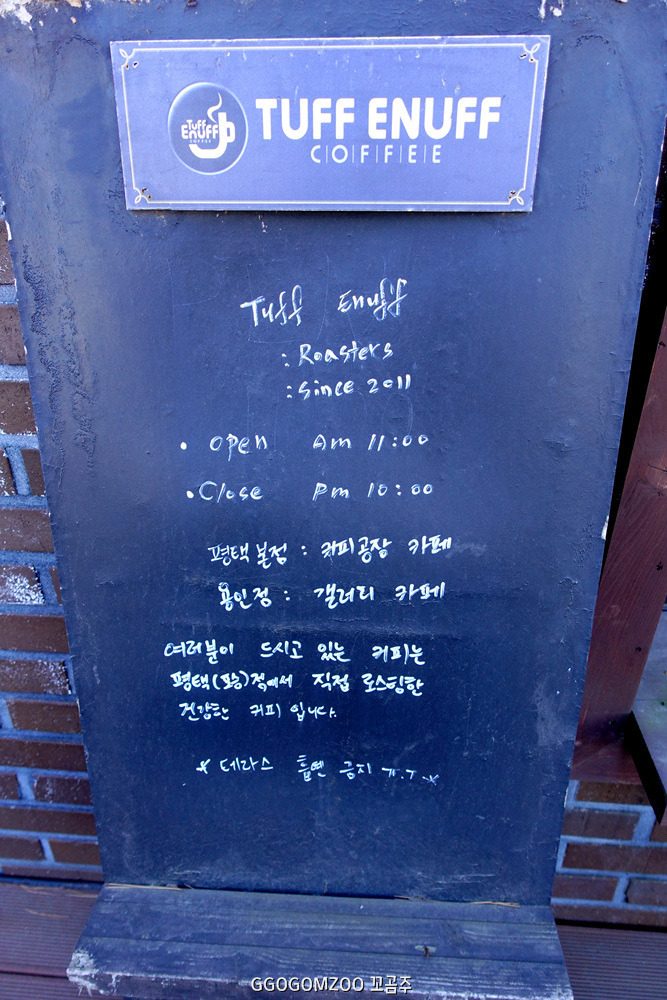 TUFF ENUFF
COFFEE
Tuff
ENUFF
COFFEE
Tuff Enuff
: Roasters
: since 2011
• open Am 11:00
• Close Pm 10:00
평택본점 : 커피공장 카페
용인점 : 갤러리 카페
여러분이 드시고 있는 커피는
평택(포승)점에서 직접 로스팅한
건강한 커피 입니다.
* 테라스 흡연 금지 ㅠ.ㅜ *
GGOGOMZOO 꼬곰주